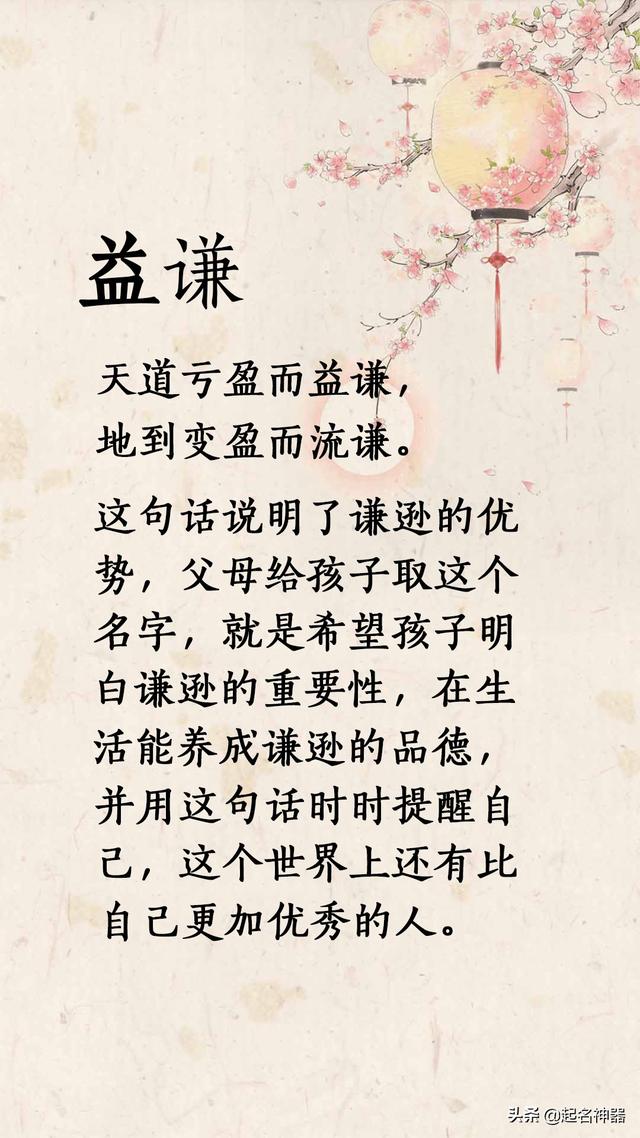 益谦
天道亏盈而益谦，
地到变盈而流谦。
这句话说明了谦逊的优
势，父母给孩子取这个
名字，就是希望孩子明
白谦逊的重要性，在生
活能养成谦逊的品德，
并用这句话时时提醒自
己，这个世界上还有比
自己更加优秀的人。
头条 @起名神器